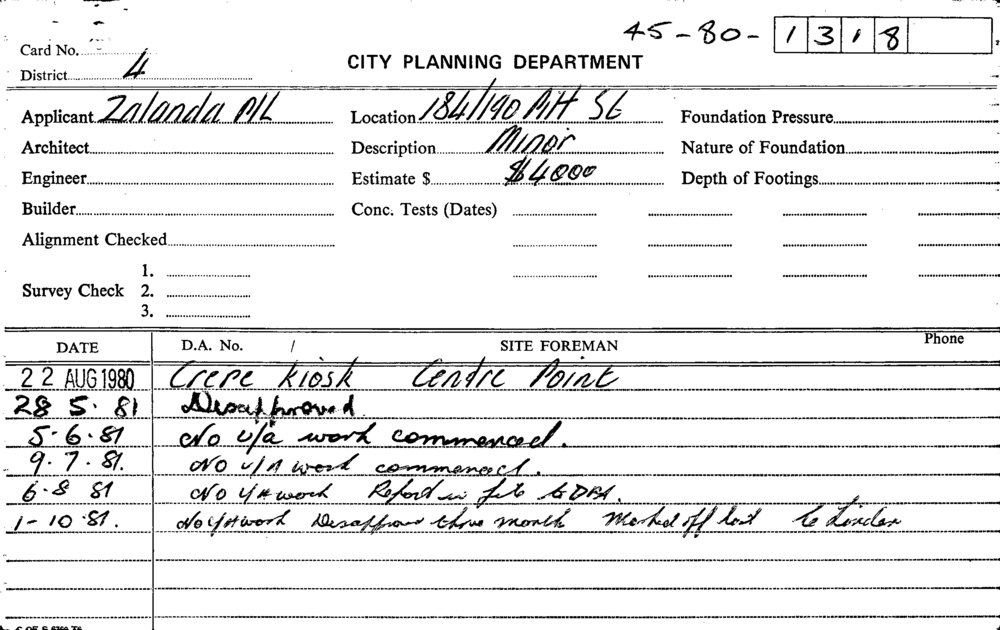 45-80- 1 3 1 8
Card No.
District 4
CITY PLANNING DEPARTMENT
Applicant Zalanda P/L
Location 184/190 Pitt St
Foundation Pressure
Architect
Description Minor
Nature of Foundation
Engineer
Estimate $ $4000
Depth of Footings
Builder
Conc. Tests (Dates)
Alignment Checked
1.
Survey Check 2.
3.
DATE D.A. No. / SITE FOREMAN Phone
22 AUG 1980 Crepe Kiosk Centre Point
28 5. 81 Disapproved
5-6.81 No u/a work commenced.
9.7.81. No u/A work commenced.
6-8 81 No u/A work Report in file to
1-10.81. No u/A work three month Marked off last to